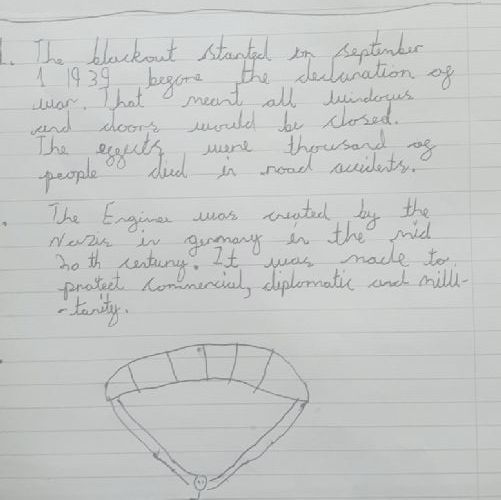 1. The blackout started on September
1 1939 before the declaration of
war. That meant all windows
and doors would be closed.
The effects were thousand of
people died in road accidents.
The Engima was created by the
Nazis in germany in the mid
30 th century. It was made to
protect commercial, diplomatic and milli-
-tarity.